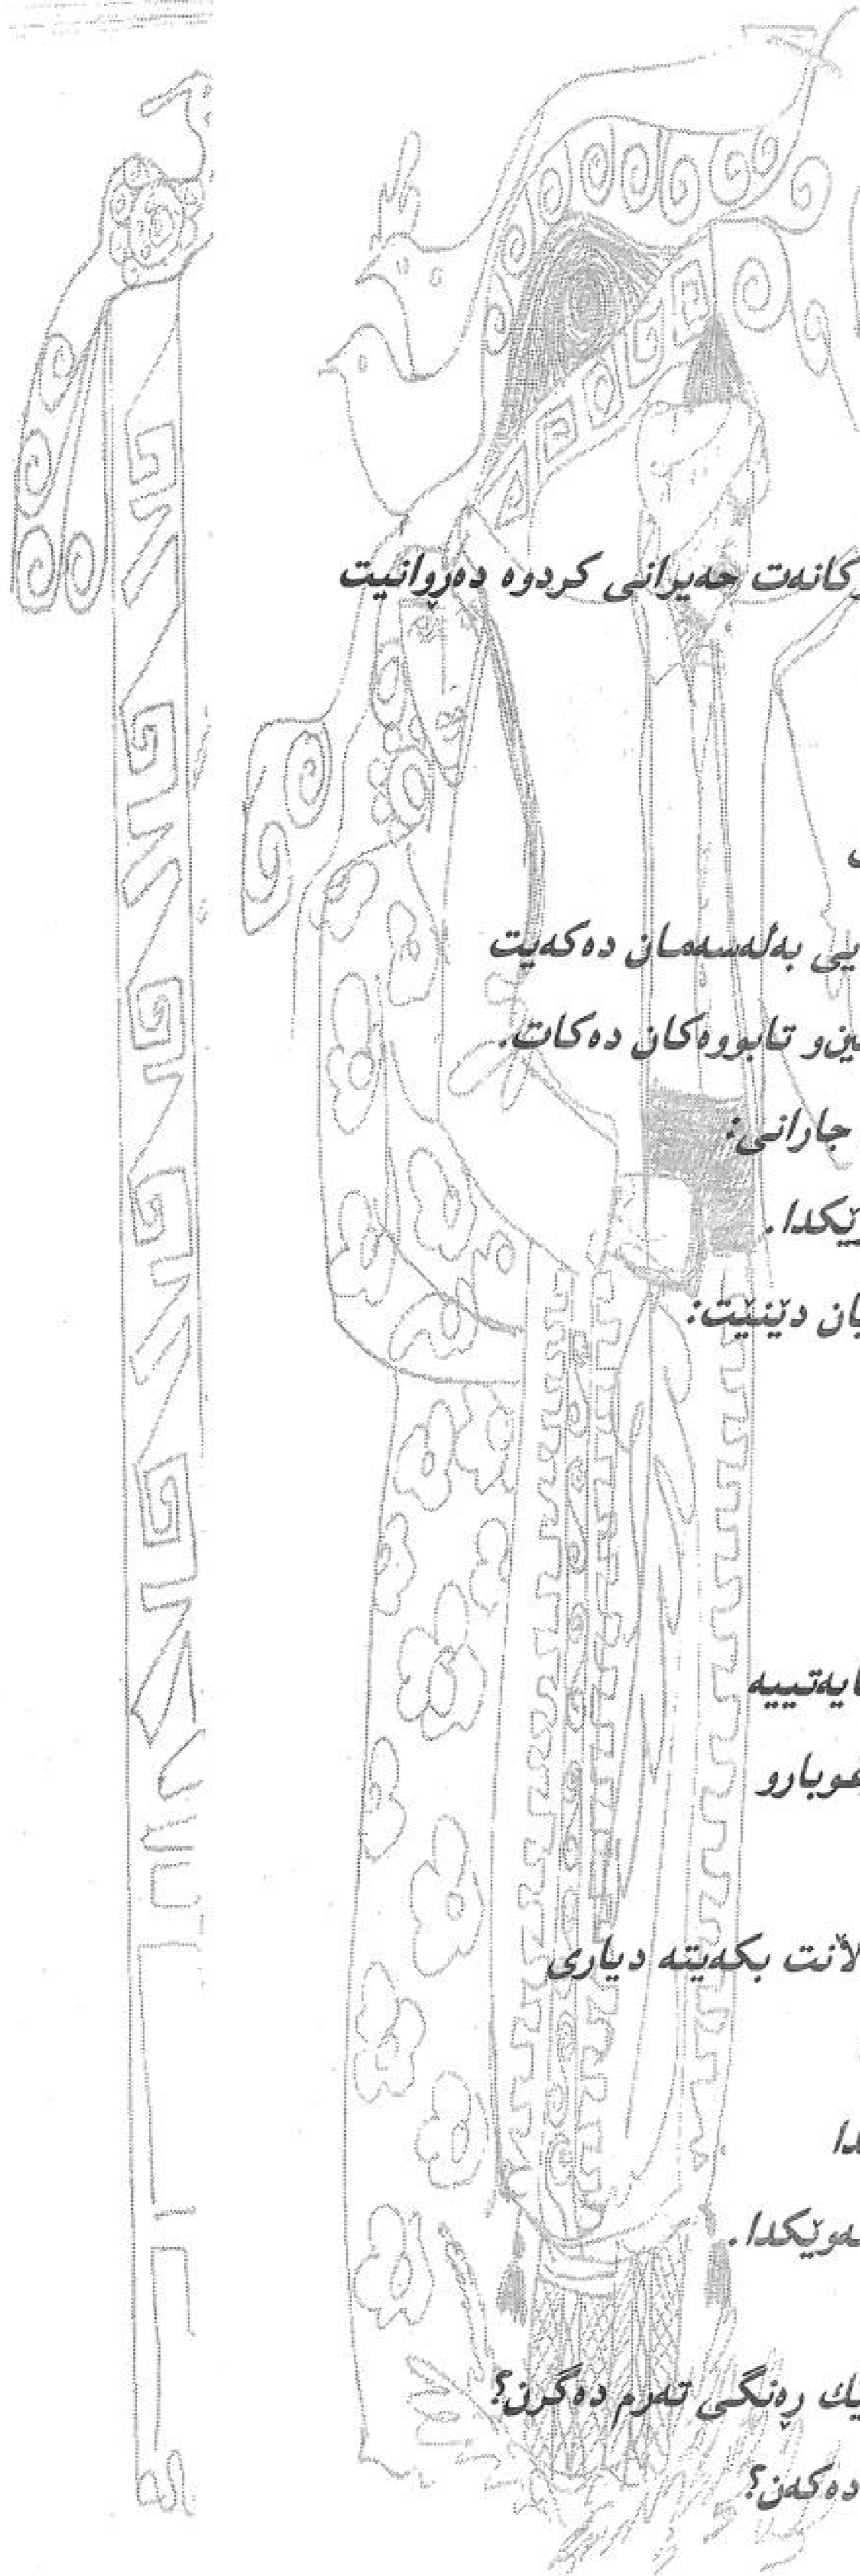 كانەت حەیرانی كردوە دەڕوانیت
یی بەلەسەمان دەكەیت
ینو تابووەكان دەكات.
جارانی:
ێكدا.
یان دێنێت:
ایەتییە
غوبارو
ڵانت بكەیتە دیاری
دا
ەوێكدا.
یك ڕەنگی تەرم دەگرن؟
دەكەن؟